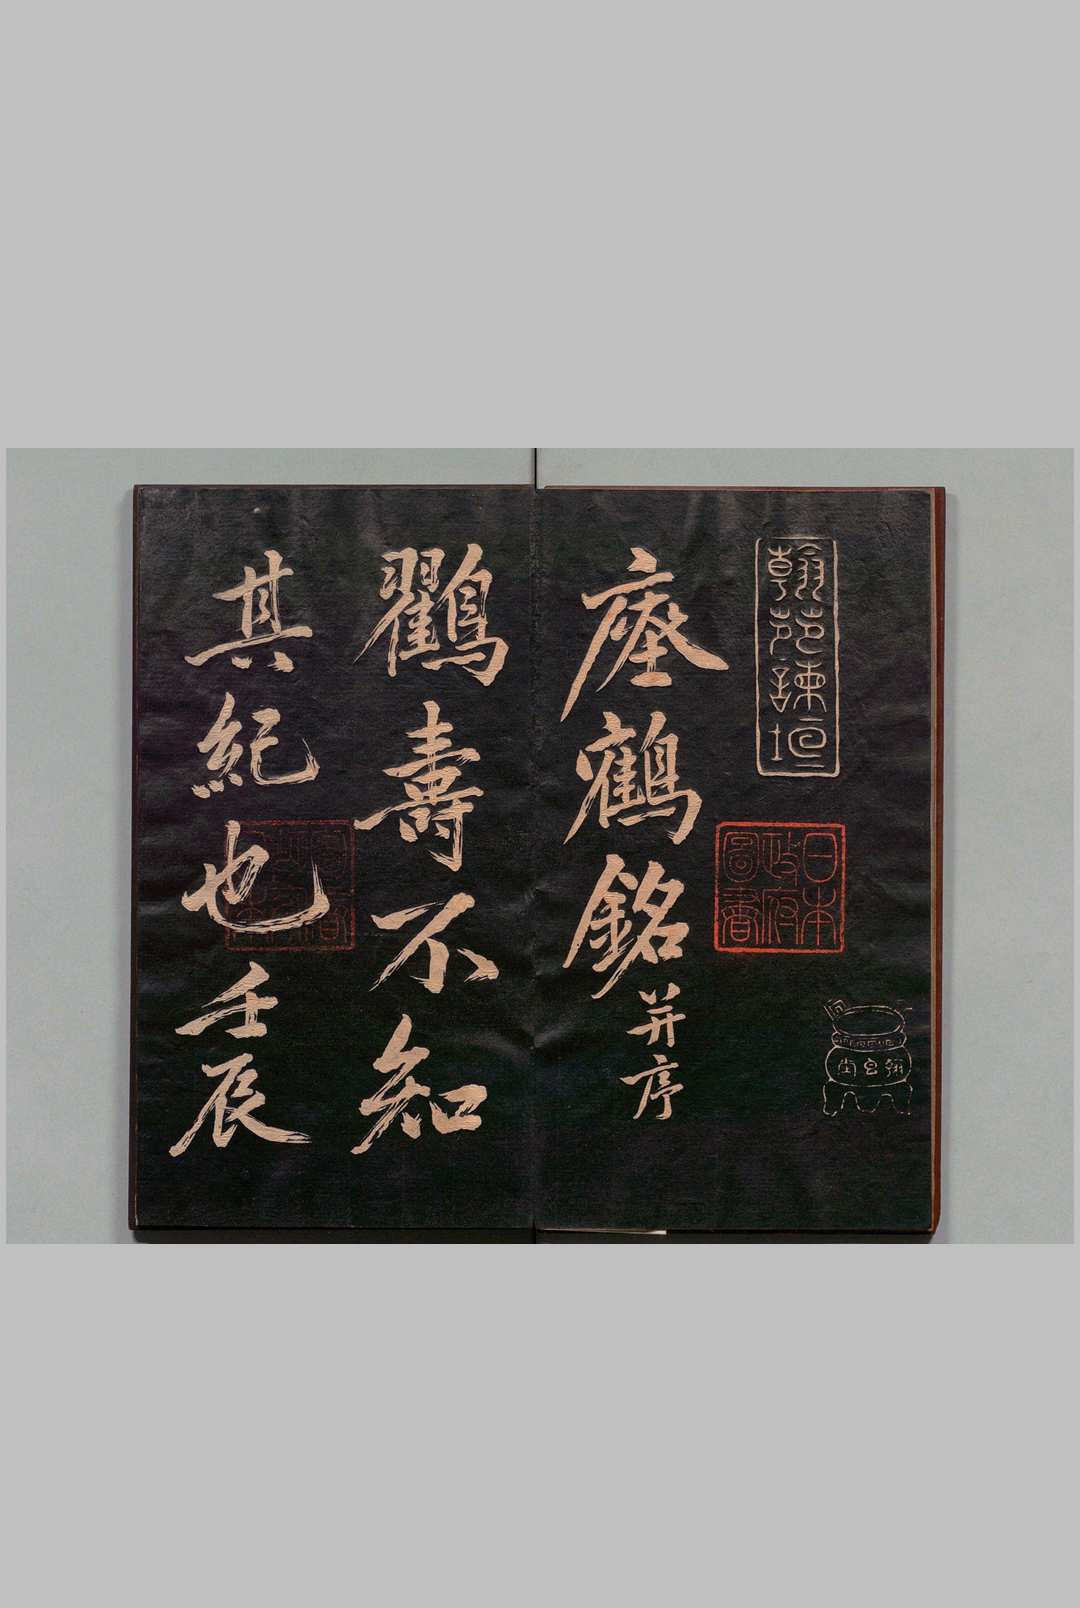 翰苑諫垣
瘞鶴銘并序
日本
政府
圖書
鸖壽不知
其紀也壬辰